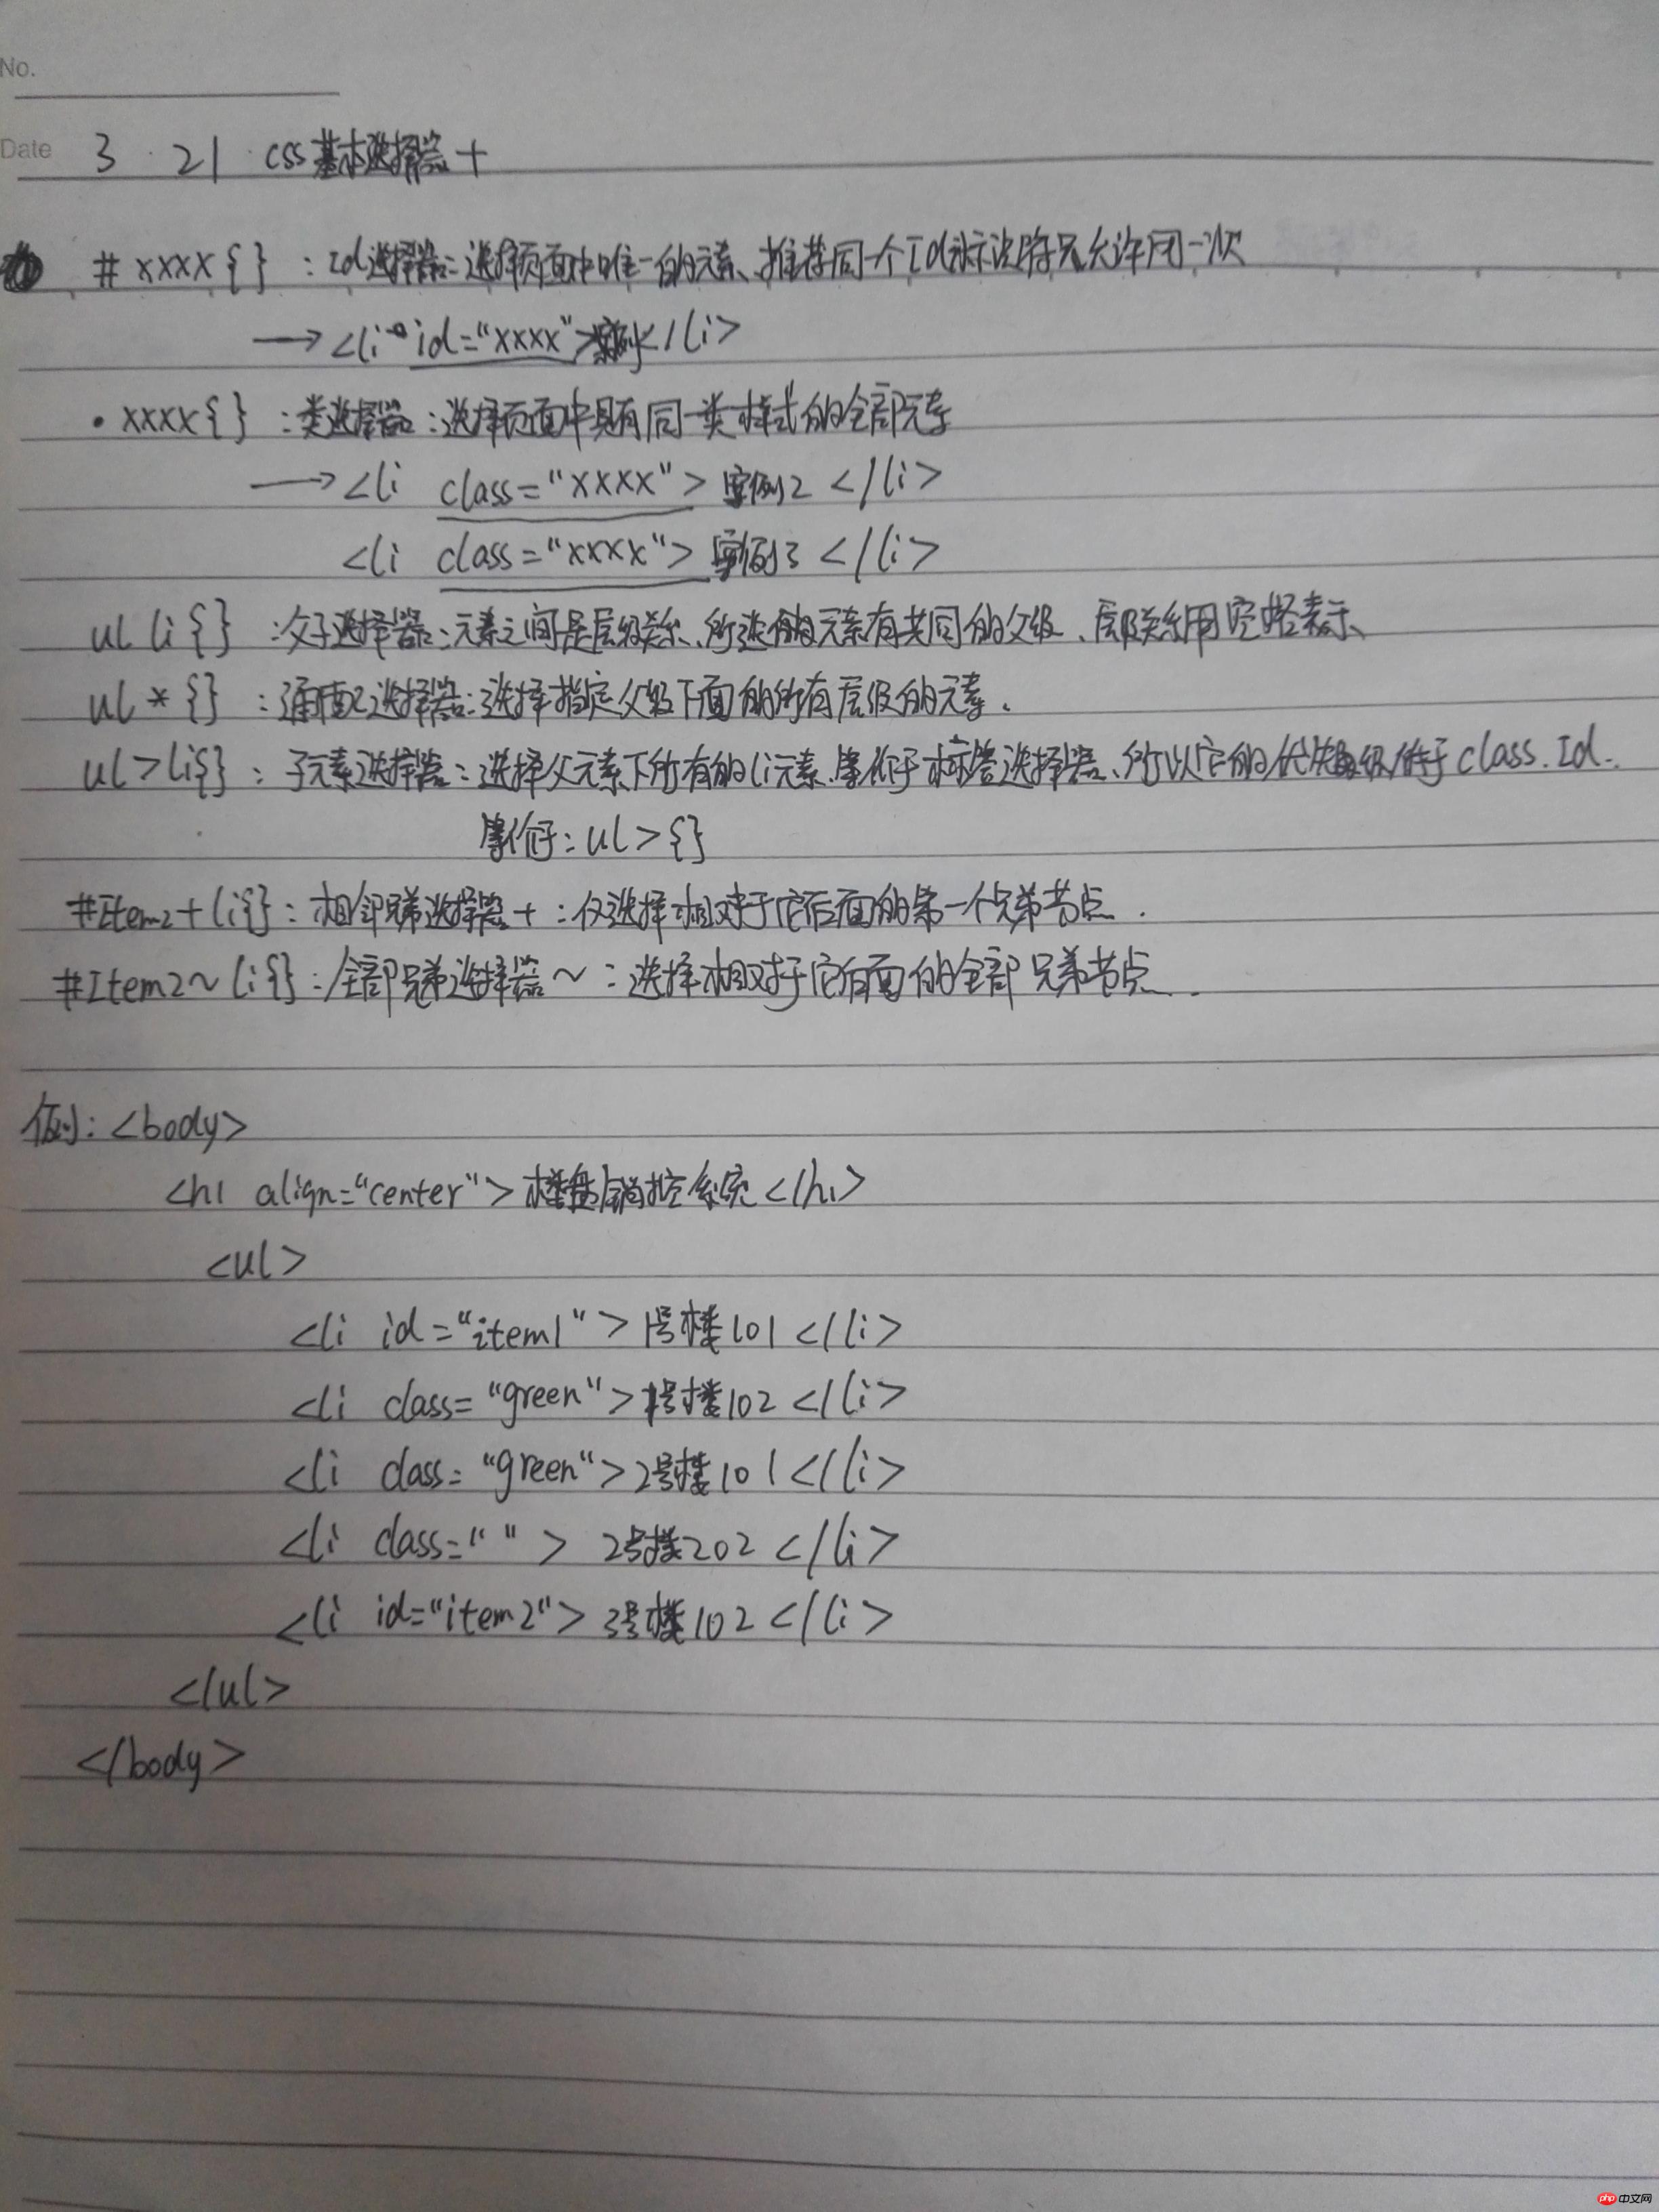 No.
Date 3 21 css基本选择器+
# xxxx{} : Id选择器:选择页面中唯一的元素、推荐同一个Id标识符只允许用一次
→<li id="xxxx">案例</li>
.xxxx{} :类选择器:选择页面中具有同一类样式的全部元素
→<li class="xxxx">案例2</li>
<li class="xxxx">案例3</li>
ul li{} :父子选择器:元素之间是层级关系、所选的元素有共同的父级、层级关系用空格表示、
ul *{} :通配选择器:选择指定父级下面的所有层级的元素.
ul>li{} :子元素选择器:选择父元素下所有的li元素、等价于标签选择器、所以它的优先级低于class.Id.
等价于:ul>{}
#Item2+li{}:相邻兄弟选择器+:仅选择相对于它后面的第一个兄弟节点.
#Item2~li{}:全部兄弟选择器~:选择相对于它后面的全部兄弟节点.
例:<body>
<h1 align="center">楼盘销控系统</h1>
<ul>
<li id="item1">1号楼101</li>
<li class="green">1号楼102</li>
<li class="green">2号楼101</li>
<li class=" "> 2号楼202</li>
<li id="item2">3号楼102</li>
</ul>
</body>
php中文网